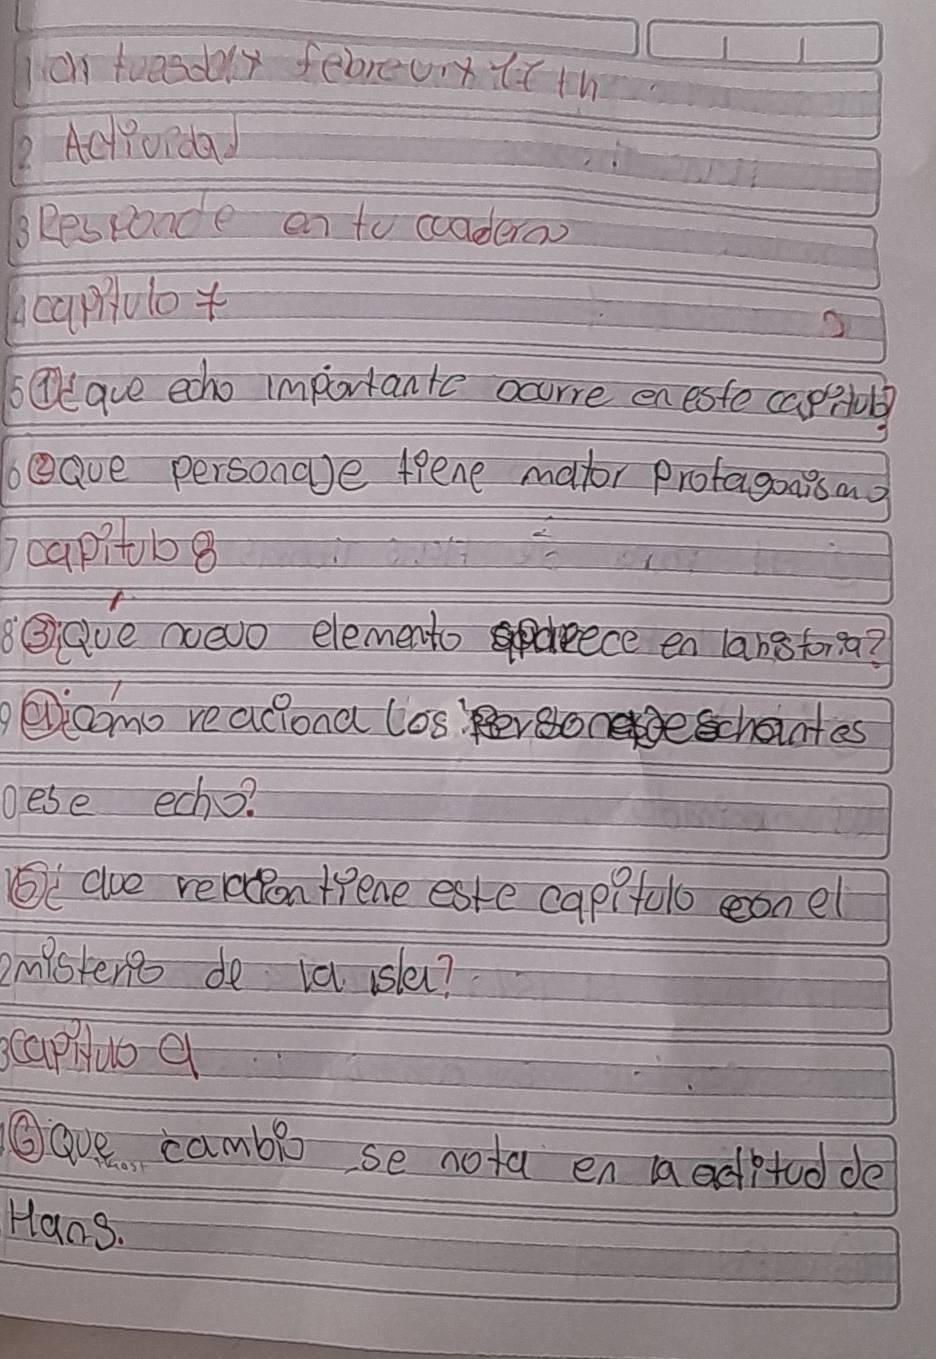 1 on tuesday februry th
2 Actividad
3 Responde en tu cuaderno
4 capitulo 7
5 ① ¿que echo importante ocurre en este capitulo?
6 ② Que personaje tiene mator protagonismo
7 capitulo 8
8 ③ ¿Qué nuevo elemento aparece en la historia?
9 ④ ¿cómo reaciona los personajes
0 ese echo?
⑤ ¿ que relacion tiene este capitulo con el
2 misterio de la isla?
3 capituo 9
⑥ Que cambio se nota en la actitud de
Hans.